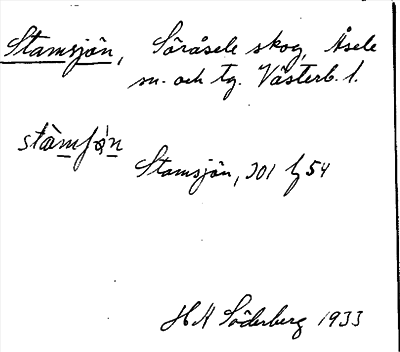 Stamsjön, Söråsele skog, Åsele
sn. och tg. Västerb. l.
stàmʃǫ̀n
Stamsjön, JO1 b 54
H A Söderberg 1933